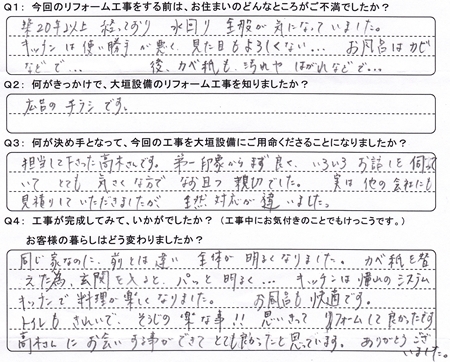 Q1: 今回のリフォーム工事をする前は、お住まいのどんなところがご不満でしたか?
築20年以上 経っており 水回り 全般が 気になっていました。
キッチンは 使い勝手が 悪く、見た目もよろしくない… お風呂はカビ
などで… 後、カベ紙も、汚れや はがれなどで…
Q2: 何がきっかけで、大垣設備のリフォーム工事を知りましたか?
広告の チラシ です。
Q3: 何が決め手となって、今回の工事を大垣設備にご用命くださることになりましたか?
担当して下さった高木さんです。第一印象から まず 良く、いろいろ お話しを 伺って
いて とても 気さくな方で なお且つ 親切でした。 実は 他の会社にも
見積りして いただきましたが 全然 対応が 違いました。
Q4: 工事が完成してみて、いかがでしたか? (工事中にお気付きのことでもけっこうです。)
お客様の暮らしはどう変わりましたか?
同じ家なのに、前とは違い 全体が 明るくなりました。カベ紙を替
えた為、玄関を入ると、パッと 明るく… キッチンは 憧れのシステム
キッチンで 料理が楽しくなりました。 お風呂も 快適です。
トイレも きれいで、そうじの 楽な事!! 思いきって リフォームして良かったです
高木さんに お会いする事ができて とても良かったと思っています。ありがとうござ
いました。